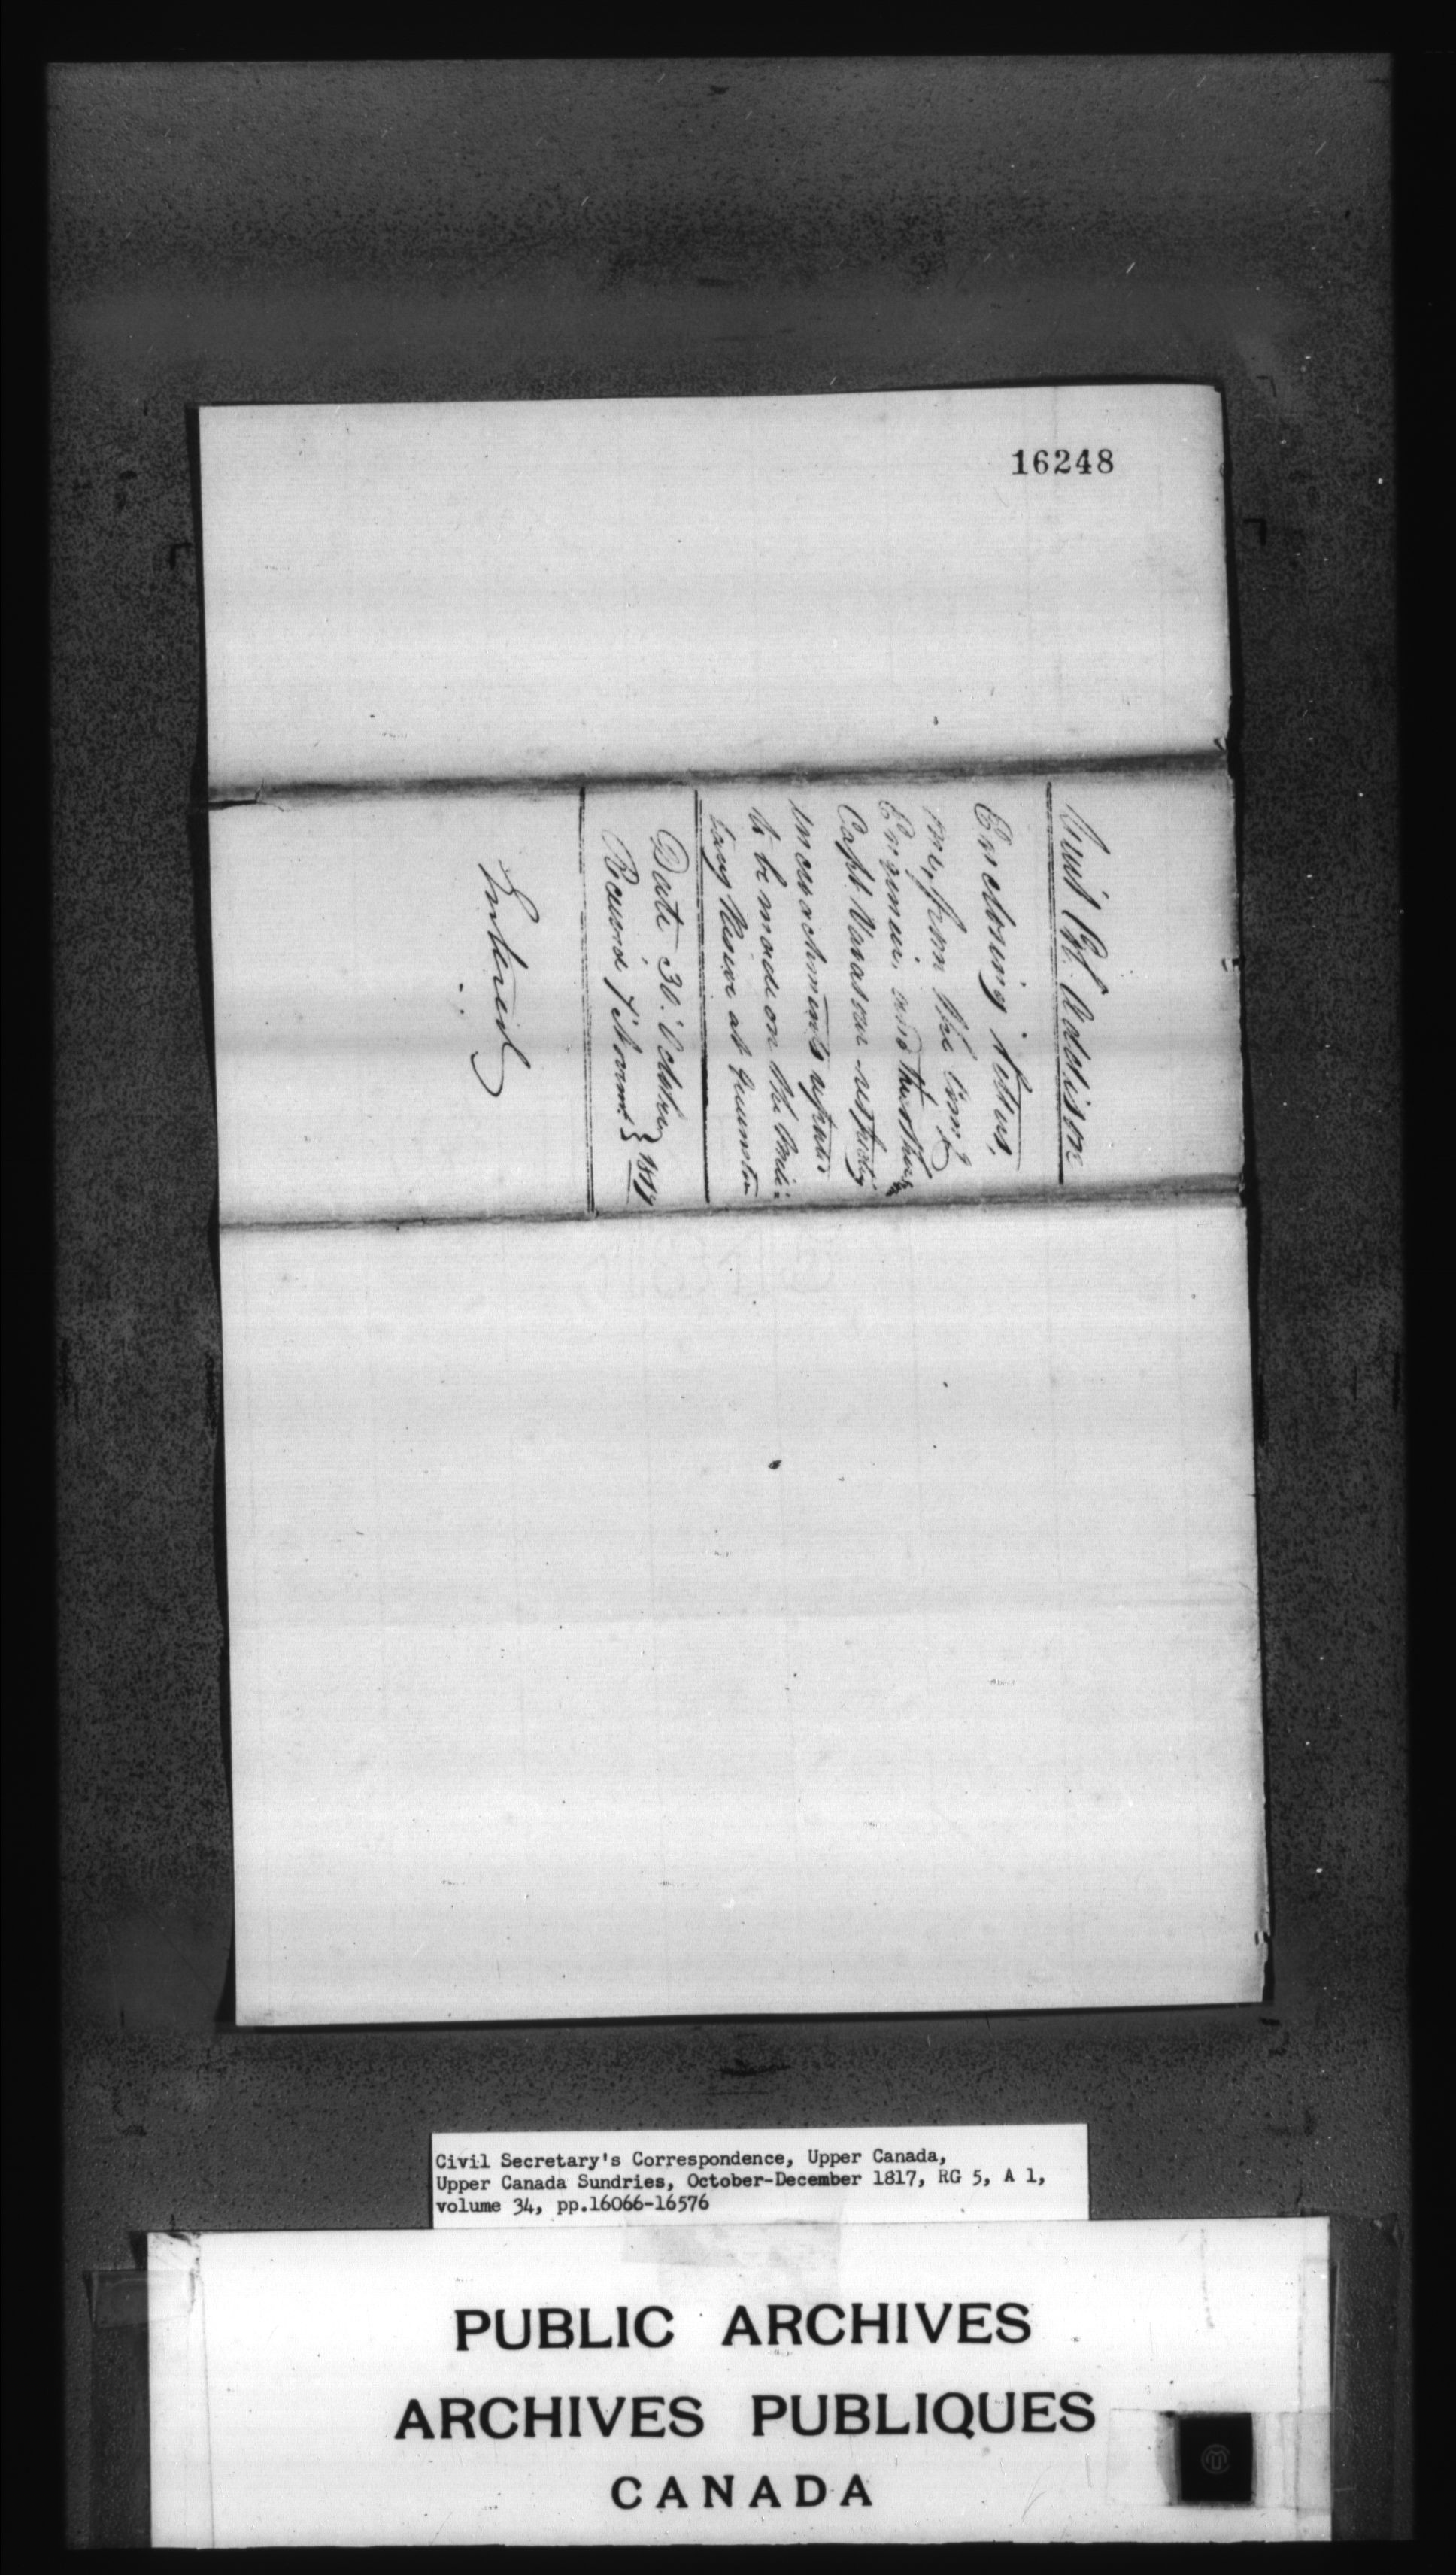 16248
Lieut Col. Addison
Enclosing letters,
one, from the Com.g
Engineer, and the other from
Capt. Vavasour respectg
encroachments
to be made on the Mili:
tary Reserve at Queenston
Date, 30.th October
Received 7th Novemr. } 1817
Entered
Civil Secretary's Correspondence, Upper Canada,
Upper Canada Sundries, October-December 1817, RG 5, A 1,
volume 34, pp.16066-16576
PUBLIC ARCHIVES
ARCHIVES PUBLIQUES
CANADA